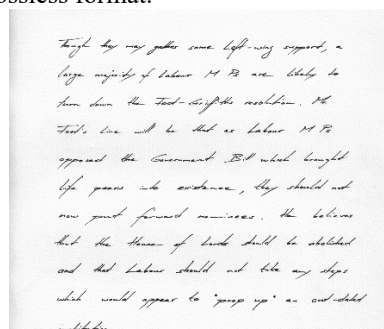 ossless format.
Though they may gather some Left-wing support, a
large majority of Labour M Ps are likely to
turn down the Foot-Griffiths resolution. Mr.
Foot's line will be that as Labour M Ps
opposed the Government Bill which brought
life peers into existence, they should not
now put forward nominees. He believes
that the House of Lords should be abolished
and that Labour should not take any steps
which would appear to "prop up" an out-dated
institution.